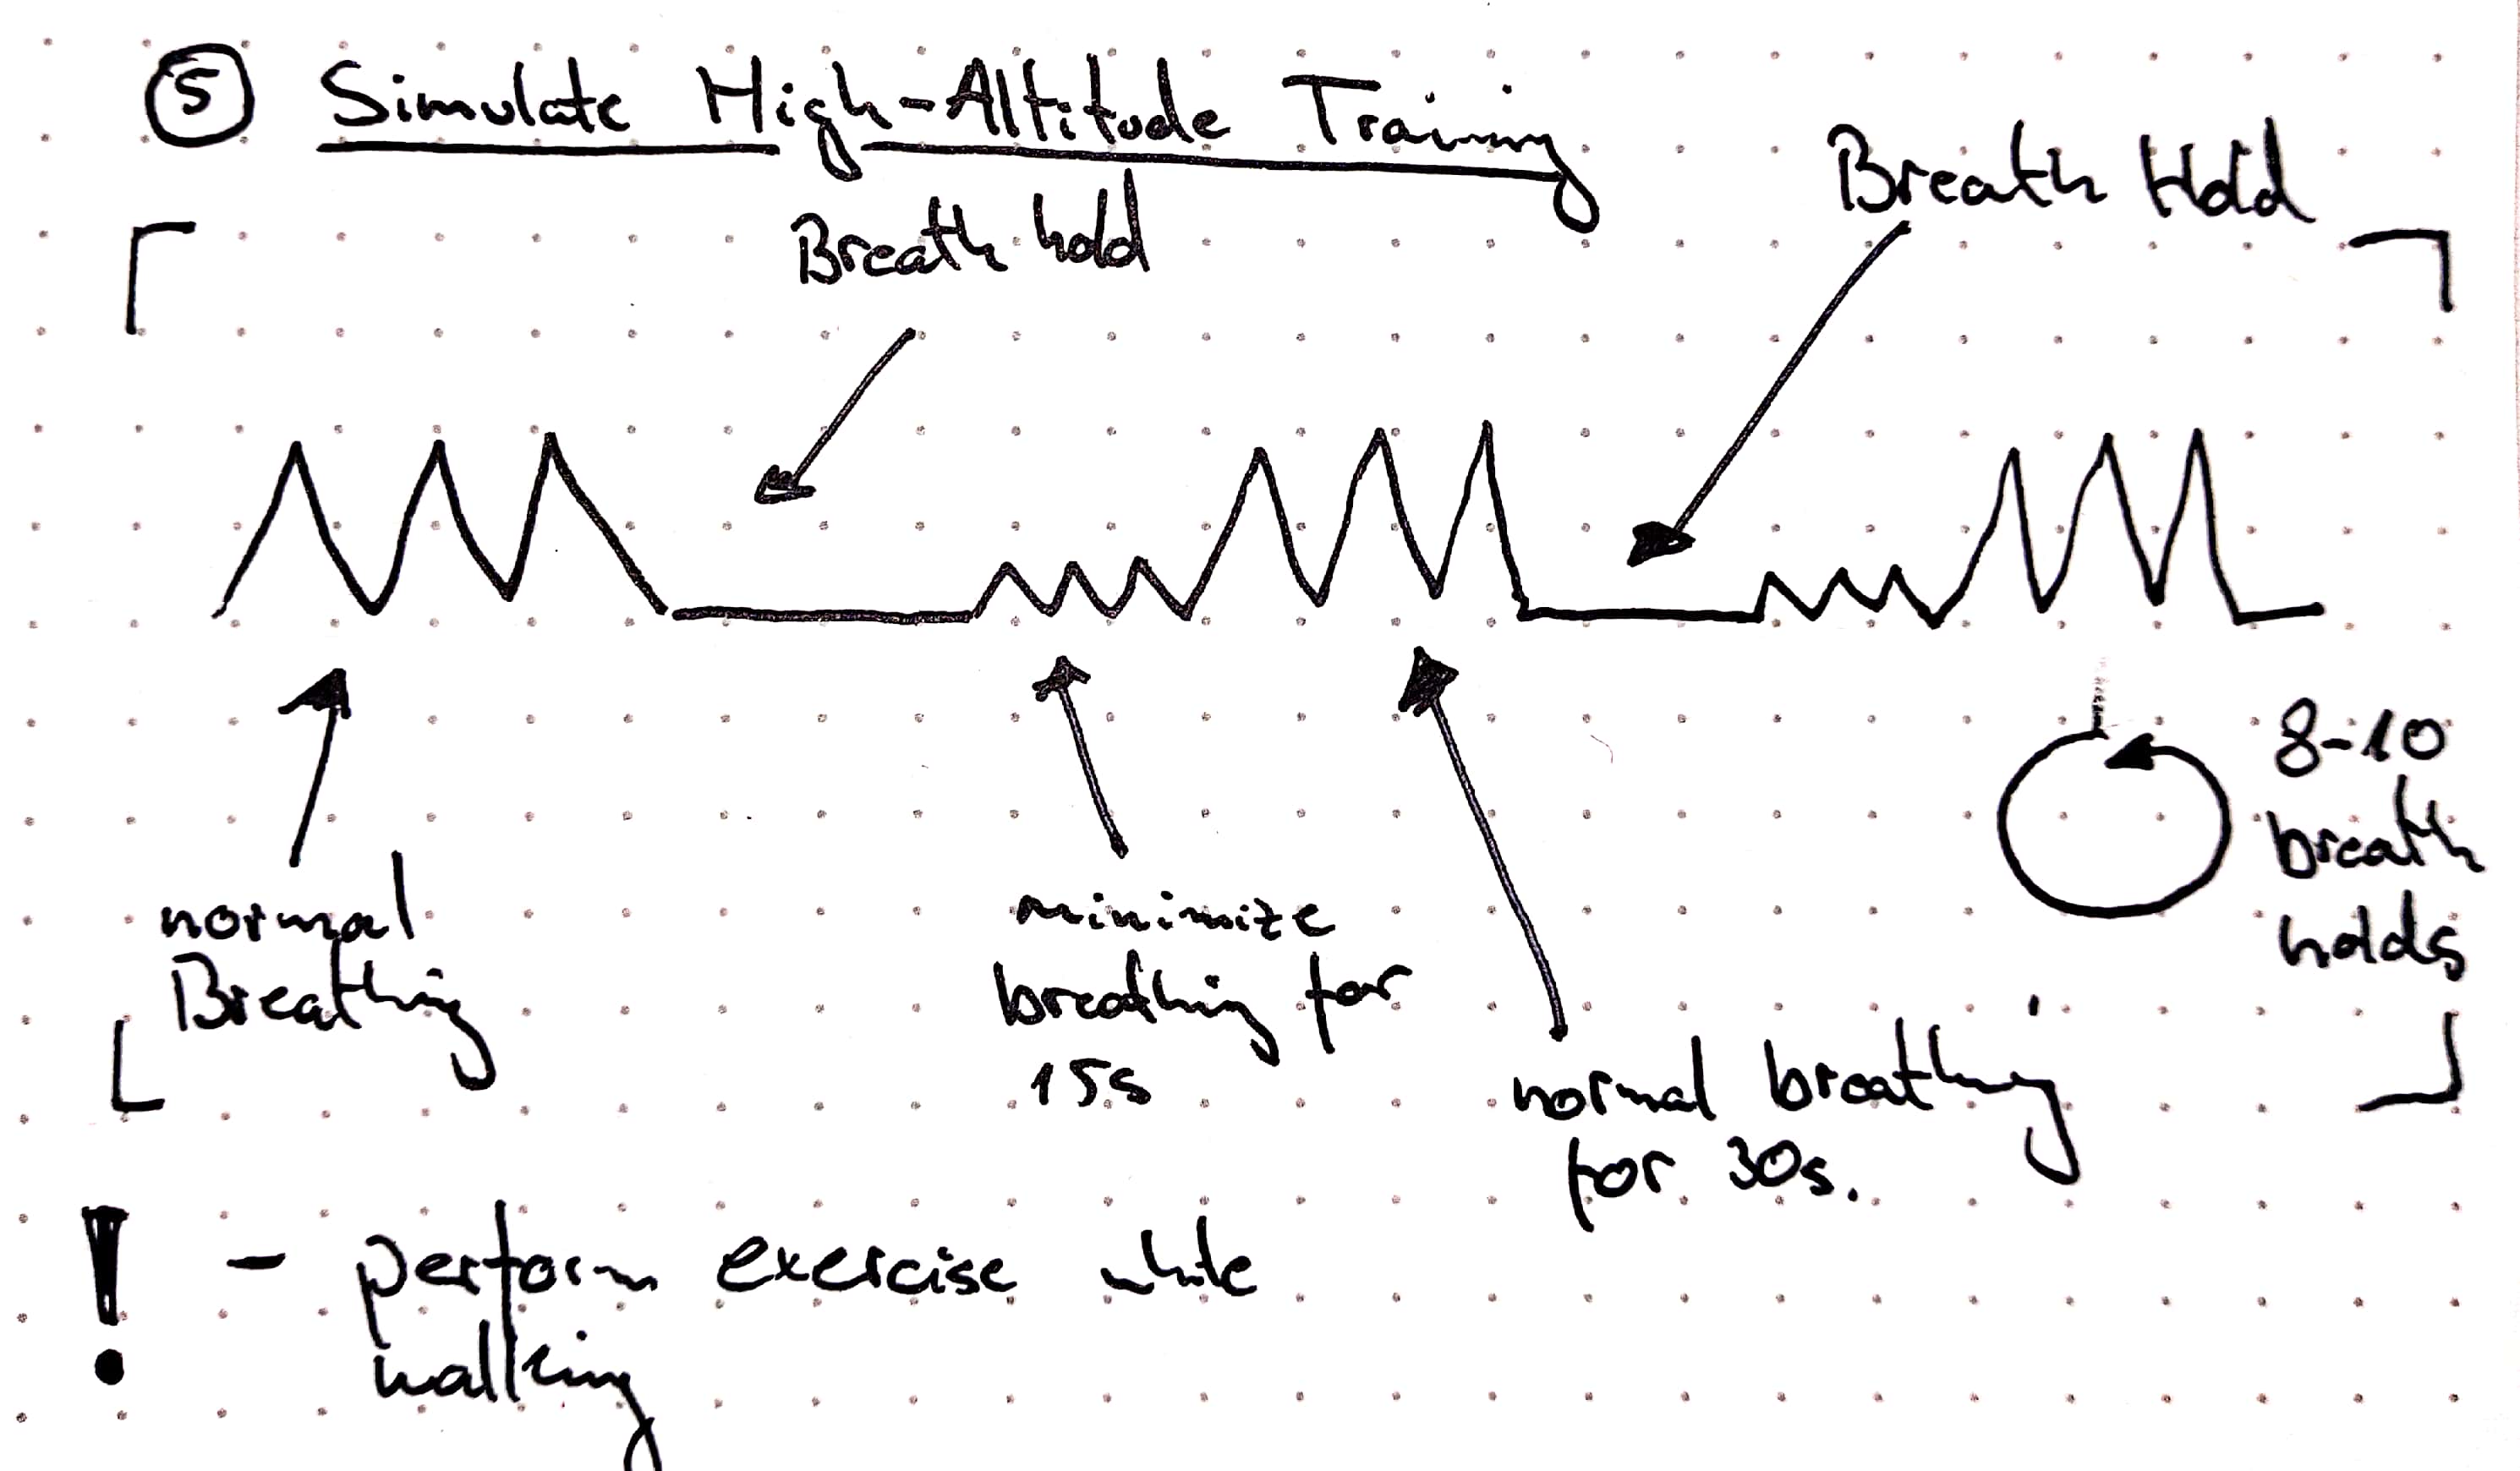 5 Simulate High-Altitude Training
Breath hold
Breath Hold
normal
Breathing
minimize
breathing for
15s
normal breathing
for 30s.
8-10
breath
holds
! - perform exercise while
walking